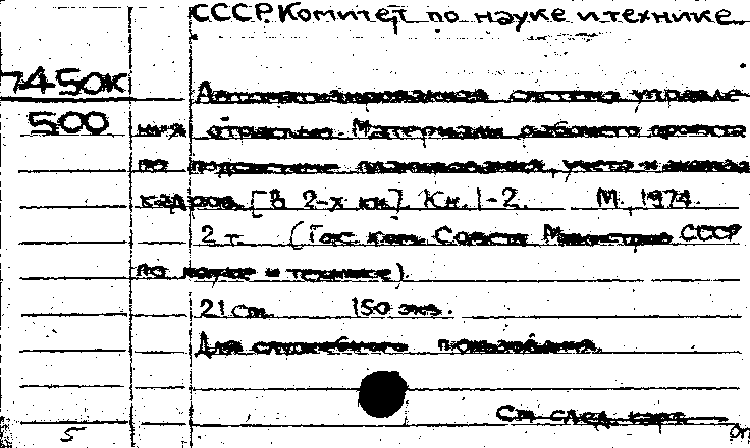 СССР. Комитет по науке и технике
7450К
500
Автоматизированная система управле-
ния отраслью. Материалы рабочего проекта
по подсистеме планирования, учета и анализа
кадров. [В 2-х кн.]. Кн. 1-2. М., 1974.
2 т. (Гос. ком. Совета Министров СССР
по науке и технике).
21 см. 150 экз.
Для служебного пользования.
См след. карт.
5